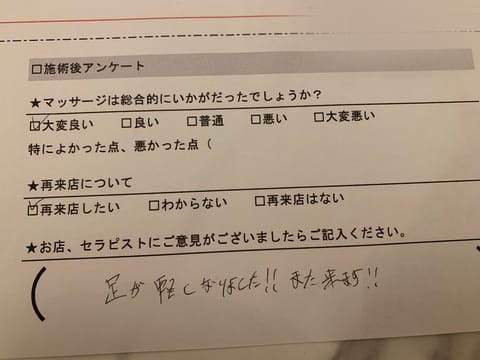 □施術後アンケート
★マッサージは総合的にいかがだったでしょうか？
☑大変良い □良い □普通 □悪い □大変悪い
特によかった点、悪かった点（
★再来店について
☑再来店したい □わからない □再来店はない
★お店、セラピストにご意見がございましたらご記入ください。
（ 足が軽くなりました!! また来ます!!